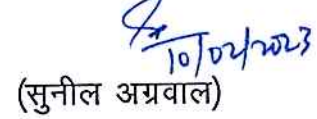 10/02/2023
(सुनील अग्रवाल)